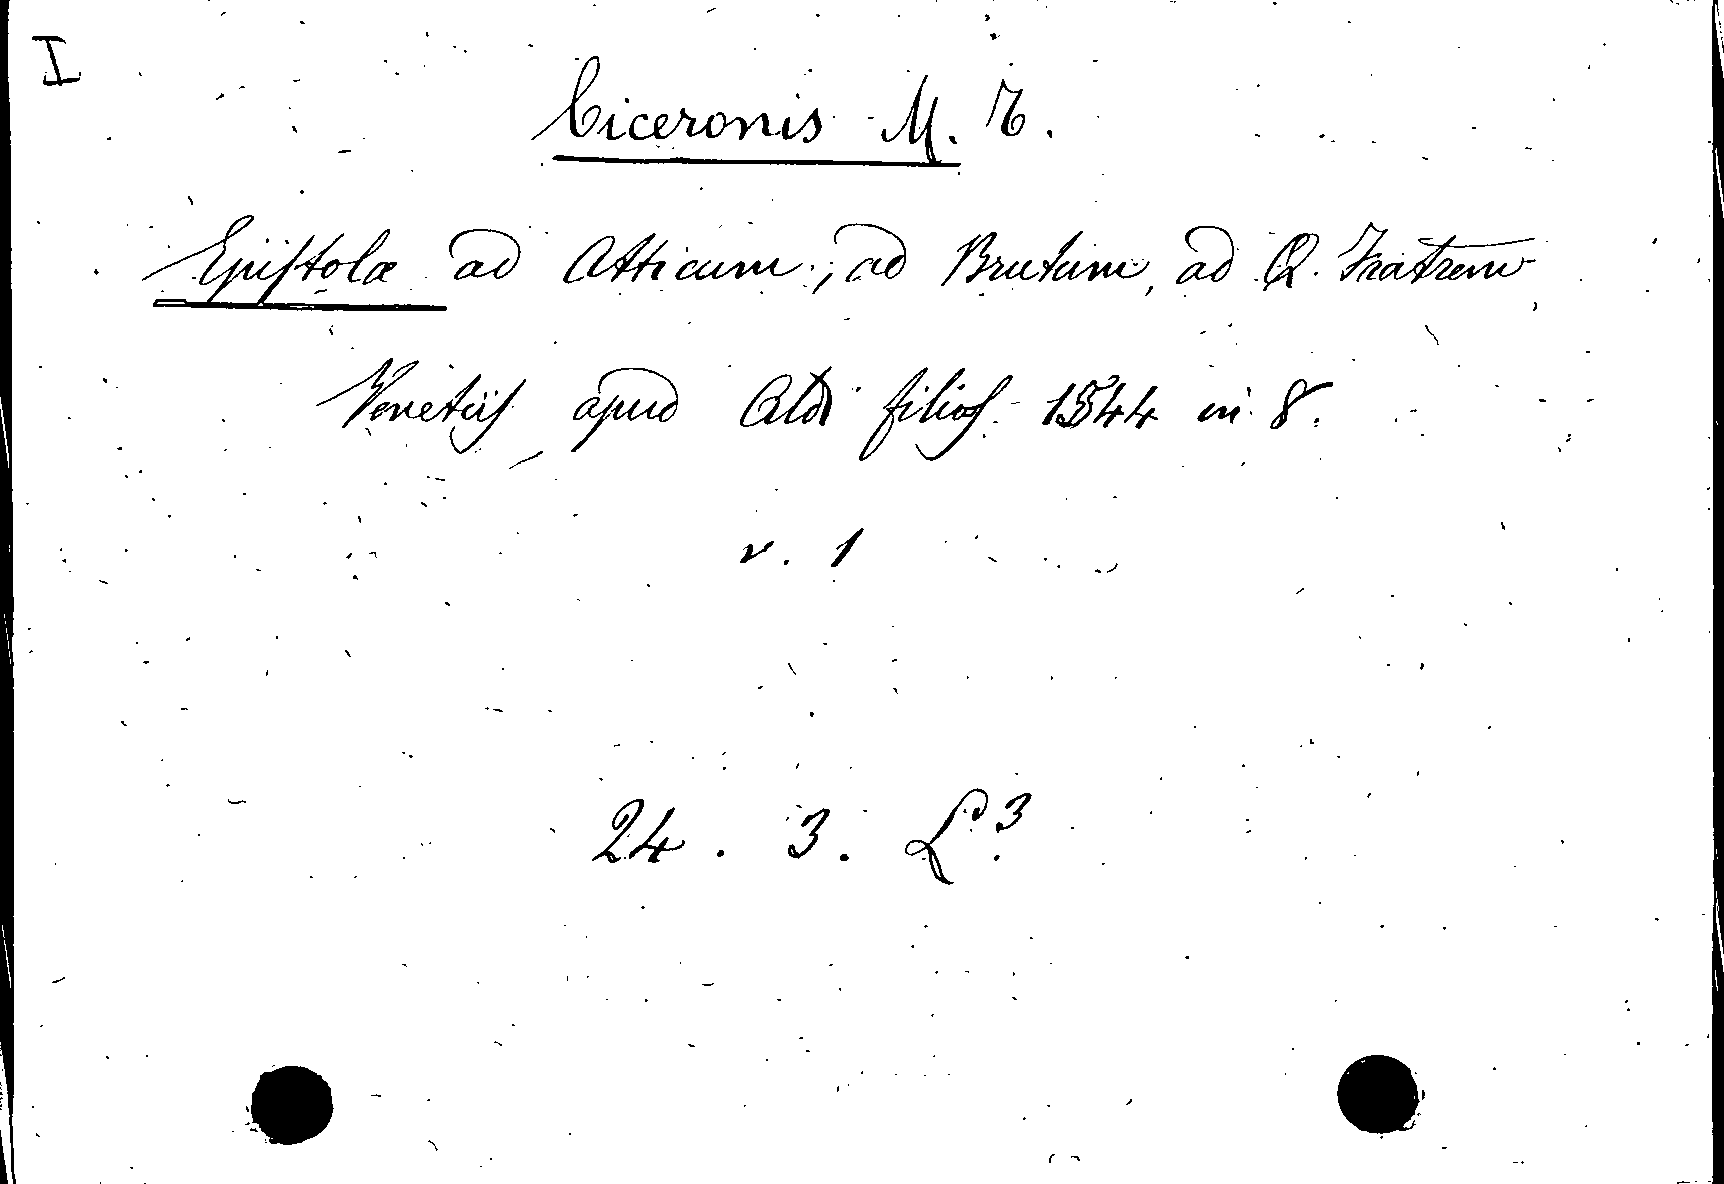 I
Ciceronis M. T.
Epistolæ ad Atticum, ad Brutum, ad Q. Fratrem
Venetiis apud Aldi filios 1544 in 8.
v. 1
24. 3. L.3